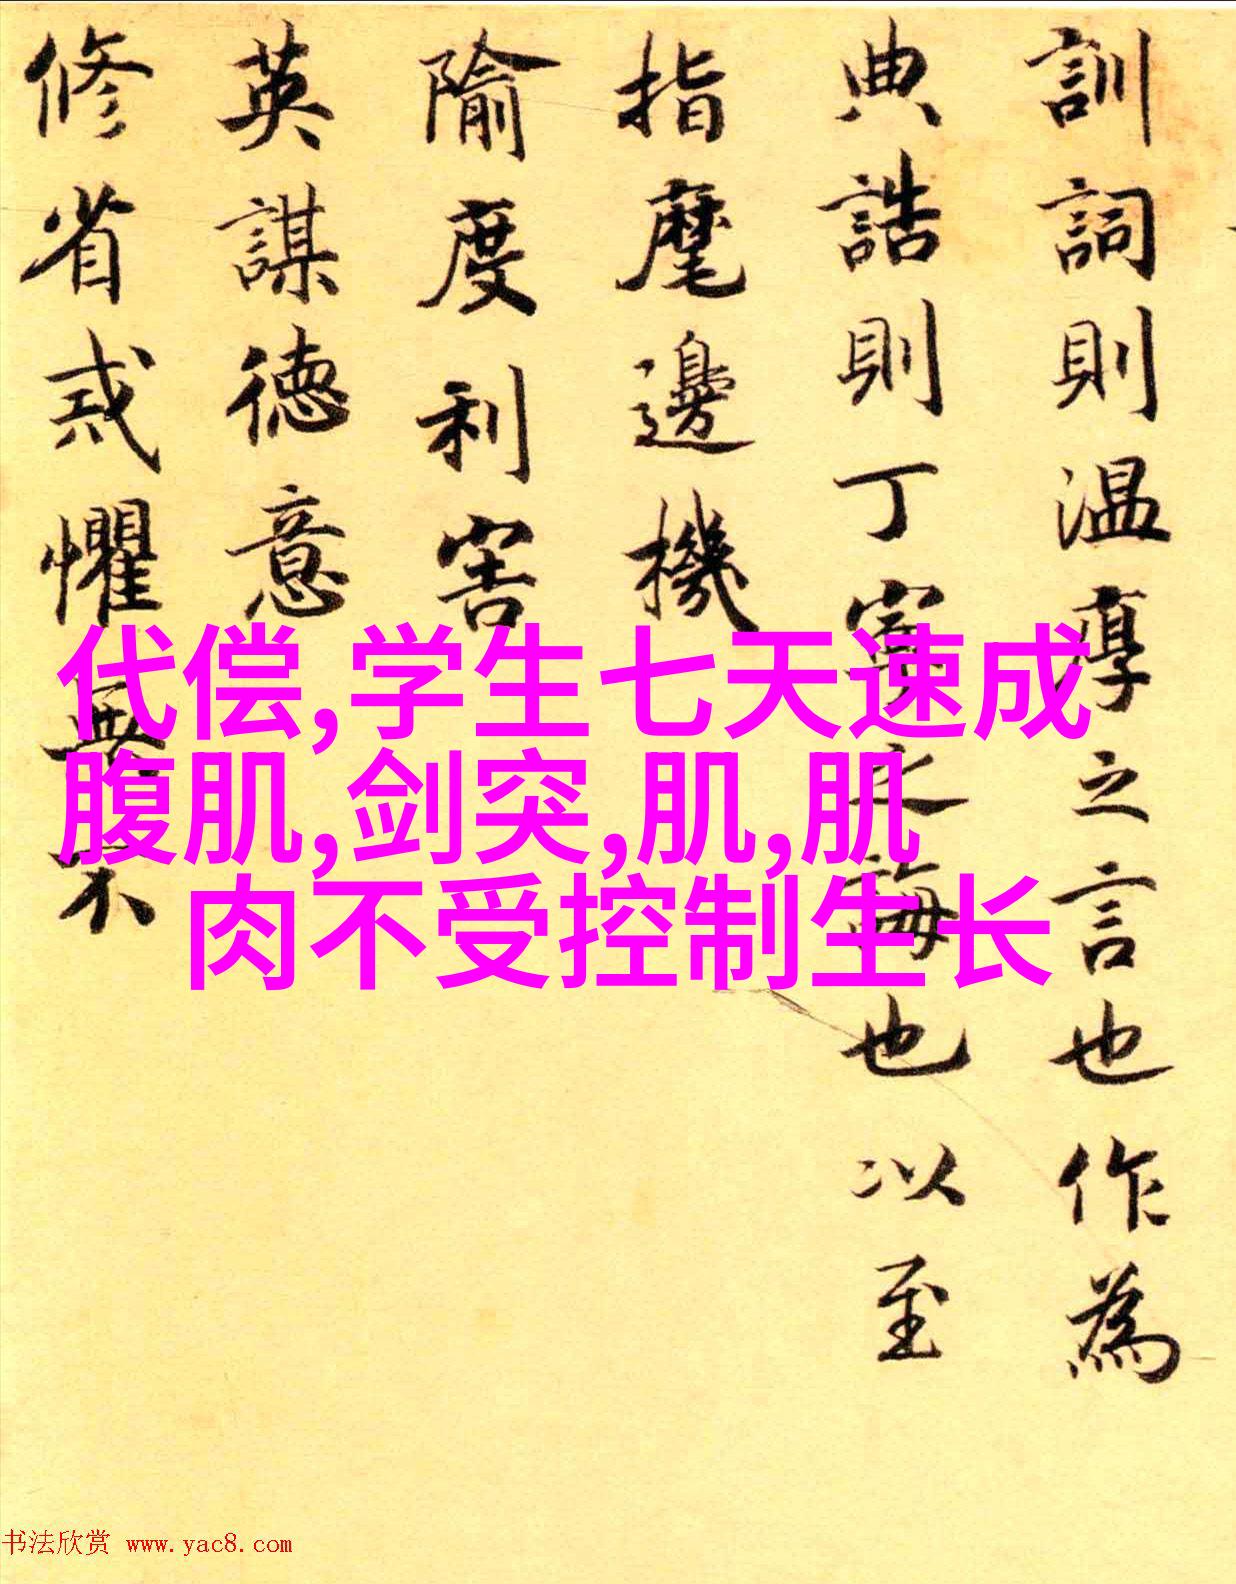 訓詞則温厚之言也作為
典誥則丁寧之誨也以至
指麾邊機
隃度利害
英謀德意
修省戒懼無不
代偿,学生七天速成
腹肌,剑突,肌,肌
肉不受控制生长
书法欣赏 www.yac8.com